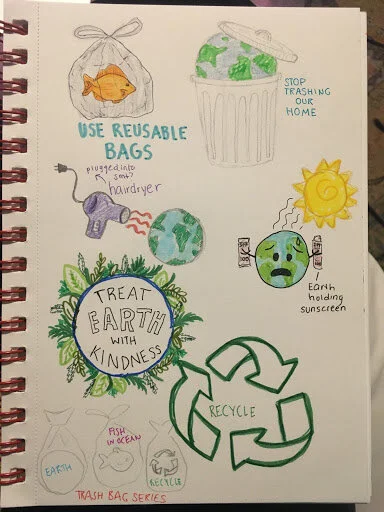 USE REUSABLE
BAGS
STOP
TRASHING
OUR
HOME
plugged into
smt?
hairdryer
Earth
holding
sunscreen
TREAT
EARTH
WITH
KINDNESS
RECYCLE
EARTH
FISH
IN OCEAN
RECYCLE
TRASH BAG SERIES